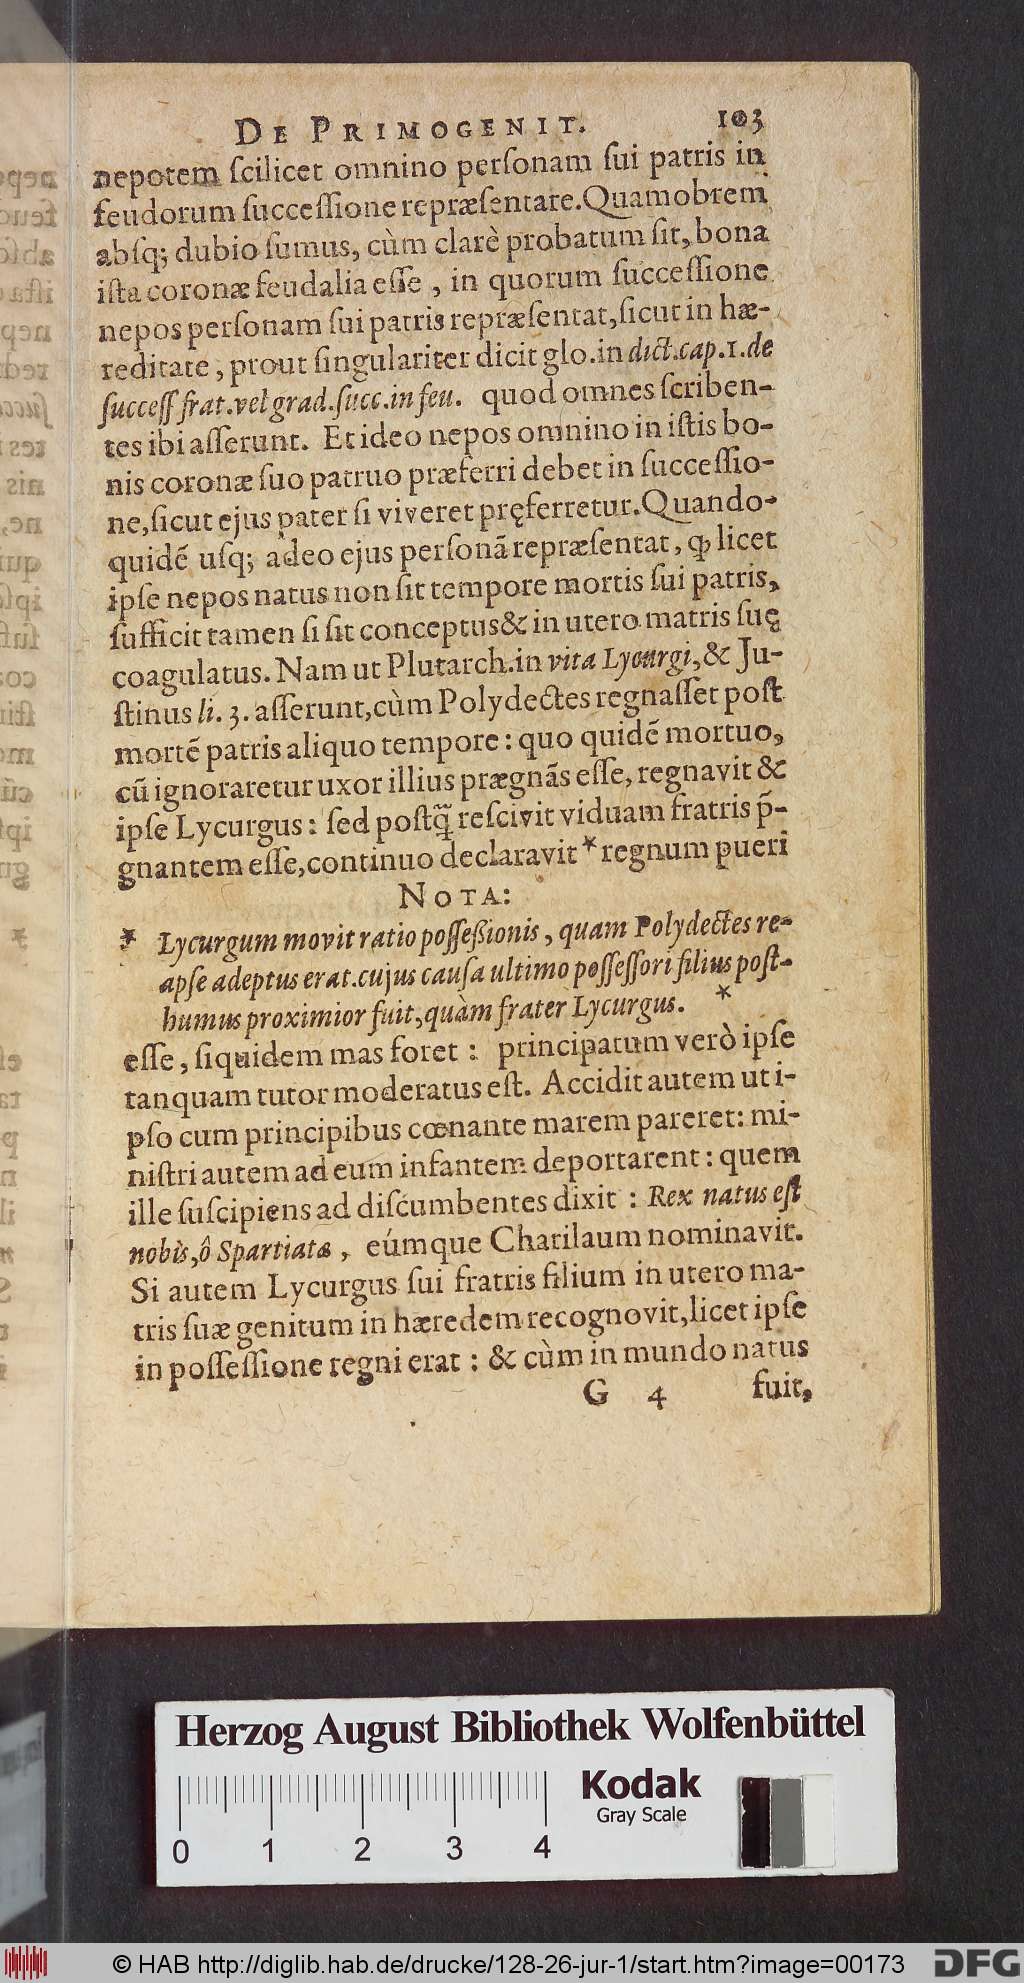 DE PRIMOGENIT. 103
nepotem scilicet omnino personam sui patris in
feudorum successione repræsentare. Quamobrem
absq; dubio sumus, cùm clarè probatum sit, bona
ista coronæ feudalia esse, in quorum successione
nepos personam sui patris repræsentat, sicut in hæ-
reditate, prout singulariter dicit glo. in dict. cap. 1. de
success frat. vel grad. succ. in feu. quod omnes scriben-
tes ibi asserunt. Et ideo nepos omnino in istis bo-
nis coronæ suo patruo præferri debet in successio-
ne, sicut ejus pater si viveret pręferretur. Quando-
quidē usq; adeo ejus personā repræsentat, ꝙ licet
ipse nepos natus non sit tempore mortis sui patris,
sufficit tamen si sit conceptus & in utero matris suę
coagulatus. Nam ut Plutarch. in vita Lycurgi, & Ju-
stinus li. 3. asserunt, cùm Polydectes regnasset post
mortē patris aliquo tempore: quo quidē mortuo,
cū ignoraretur uxor illius prægnās esse, regnavit &
ipse Lycurgus: sed postq̃ rescivit viduam fratris p̄-
gnantem esse, continuo declaravit * regnum pueri
NOTA:
* Lycurgum movit ratio posseßionis, quam Polydectes re-
apse adeptus erat. cujus causa ultimo possessori filius post-
humus proximior fuit, quàm frater Lycurgus. *
esse, siquidem mas foret: principatum verò ipse
tanquam tutor moderatus est. Accidit autem ut i-
pso cum principibus cœnante marem pareret: mi-
nistri autem ad eum infantem deportarent: quem
ille suscipiens ad discumbentes dixit: Rex natus est
nobìs, ô Spartiatæ, eúmque Charilaum nominavit.
Si autem Lycurgus sui fratris filium in utero ma-
tris suæ genitum in hæredem recognovit, licet ipse
in possessione regni erat: & cùm in mundo natus
G 4 fuit,
Herzog August Bibliothek Wolfenbüttel
Kodak
Gray Scale
0 1 2 3 4
© HAB http://diglib.hab.de/drucke/128-26-jur-1/start.htm?image=00173 DFG